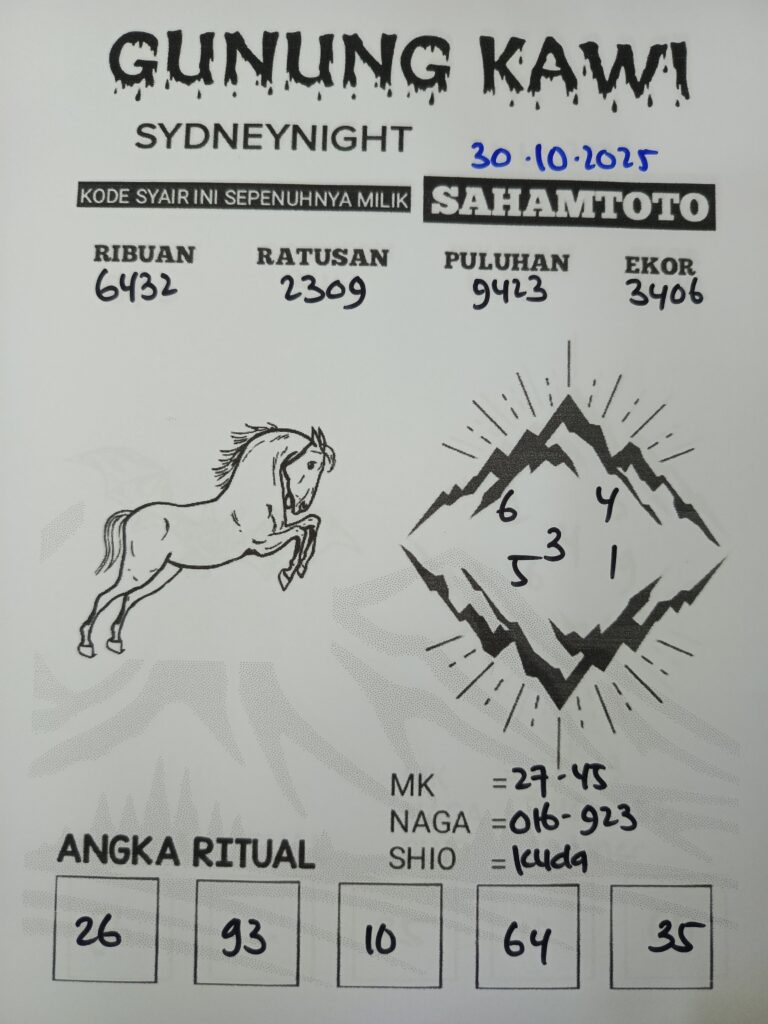 GUNUNG KAWI
SYDNEYNIGHT
30.10.2025
KODE SYAIR INI SEPENUHNYA MILIK SAHAMTOTO
RIBUAN RATUSAN PULUHAN EKOR
6432 2309 9423 3406
6 4
3
5 1
MK = 27-45
NAGA = 016-923
SHIO = Kuda
ANGKA RITUAL
26 93 10 64 35